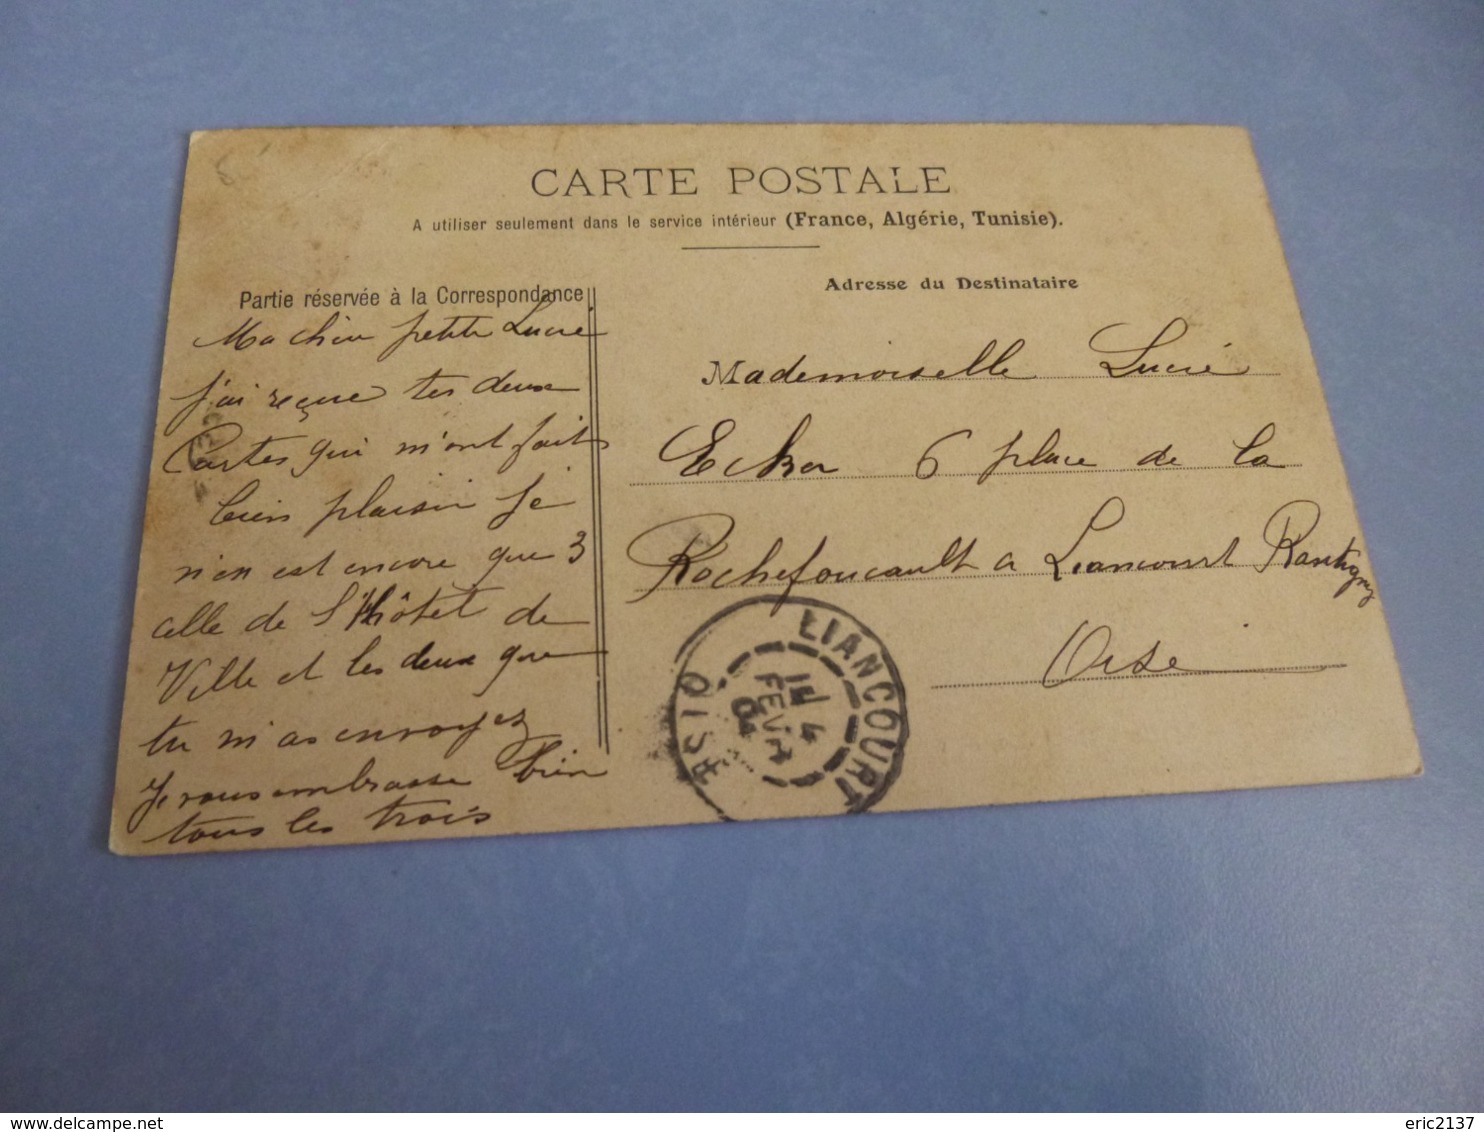 CARTE POSTALE
A utiliser seulement dans le service intérieur (France, Algérie, Tunisie).
Partie réservée à la Correspondance
Ma chère petite Lucie
j'ai reçue tes deux
Cartes qui m'ont fait
bien plaisir je
n'en est encore que 3
celle de l'hôtel de
Ville et les deux que
tu m'as envoyez
Je vous embrasse bien
tous les trois
Adresse du Destinataire
Mademoiselle Lucie
Ecker 6 place de la
Rochefoucault a Liancourt Rantigny
Oise
LIANCOURT
OISE
4
FEVR
04
delcampe.net
eric2137